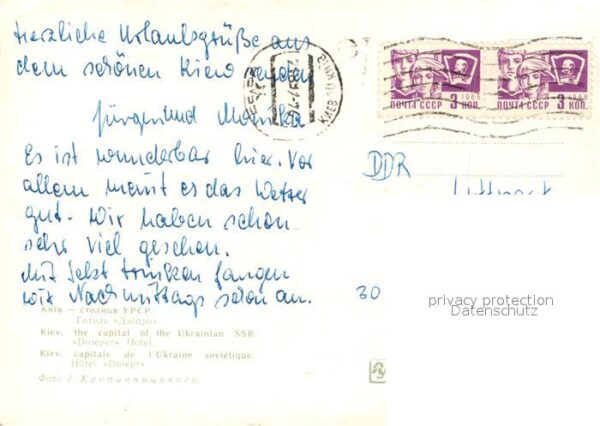 Herzliche Urlaubsgrüße aus
dem schönen Kiew senden
Jürgen und Monika
Es ist wunderbar hier. Vor
allem meint es das Wetter
gut. Wir haben schon
sehr viel gesehen.
Mit Sekt trinken fangen
wir Nachmittags schon an.
Київ — столиця УРСР.
Готель «Дніпро».
Kiev, the capital of the Ukrainian SSR.
«Dnieper» Hotel
Kiev, capitale de l'Ukraine soviétique.
Hôtel «Dniepr»
Фото І. Кропивницького
КИЕВ
ПОЧТА СССР 3 КОП.
ПОЧТА СССР 3 КОП.
DDR
Luftpost
30
privacy protection
Datenschutz